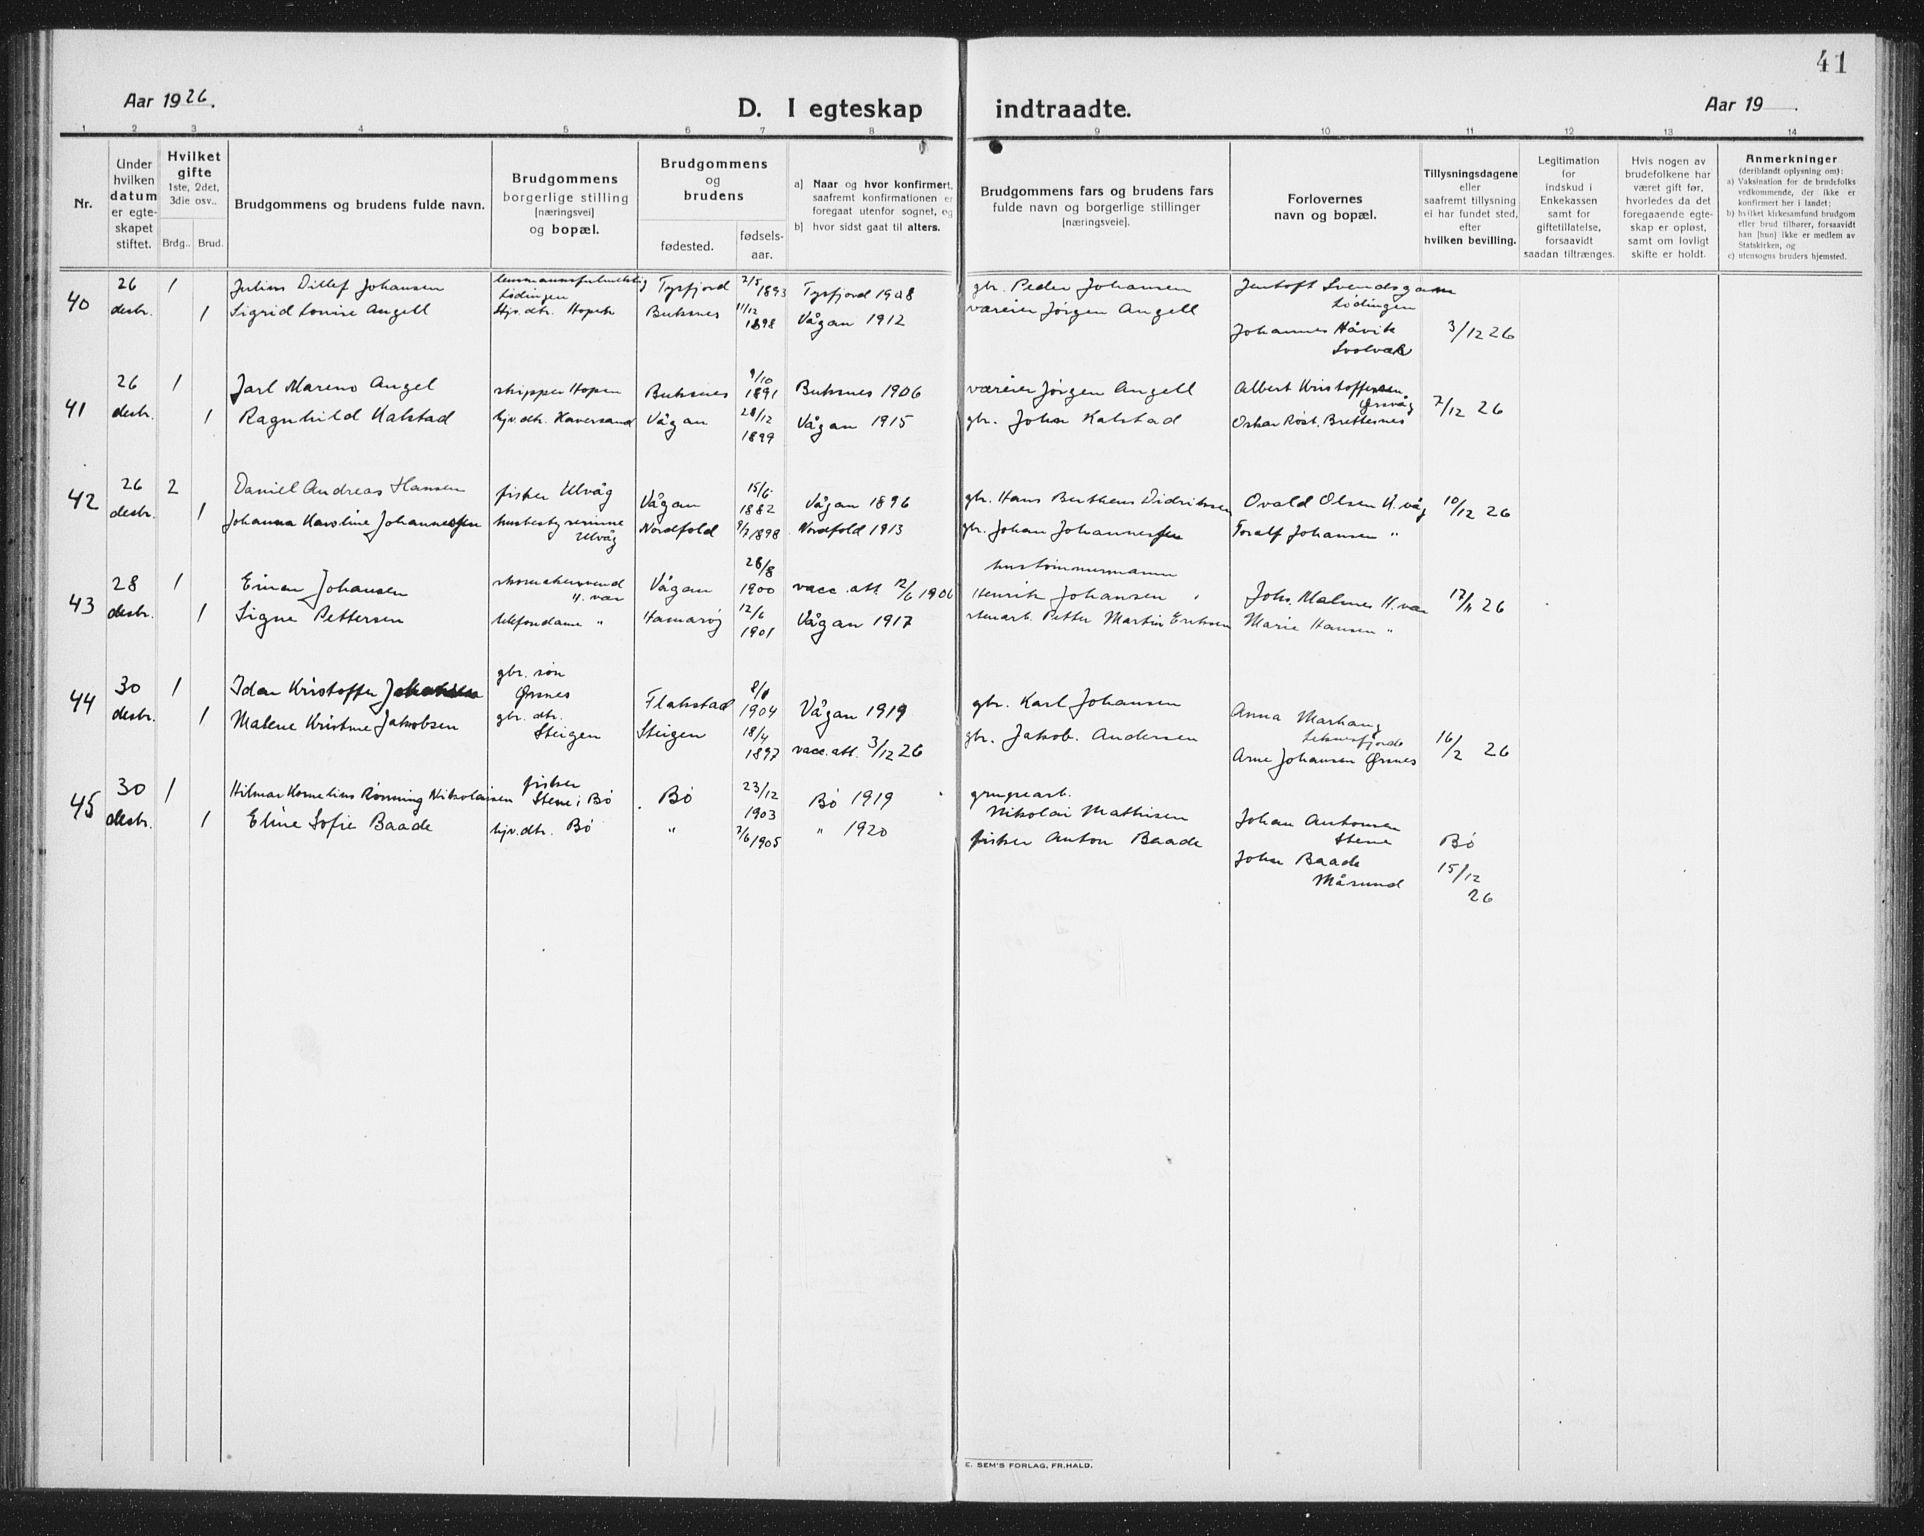 41
Aar 1926.
D. I egteskap indtraadte.
Aar 19 .
1 2 3 4 5 6 7 8 9 10 11 12 13 14
Nr.
Under
hvilken
datum
er egte-
skapet
stiftet.
Hvilket
gifte
1ste, 2det,
3die osv..
Brdg.. Brud.
Brudgommens og brudens fulde navn.
Brudgommens
borgerlige stilling
[næringsvei]
og bopæl.
Brudgommens
og
brudens
fødested.
fødsels-
aar.
a) Naar og hvor konfirmert,
saafremt konfirmationen er
foregaat utenfor sognet, og
b) hvor sidst gaat til alters.
Brudgommens fars og brudens fars
fulde navn og borgerlige stillinger
[næringsveie].
Forlovernes
navn og bopæl.
Tillysningsdagene
eller
saafremt tillysning
ei har fundet sted,
efter
hvilken bevilling.
Legitimation
for
indskud i
Enkekassen
samt for
giftetillatelse,
forsaavidt
saadan tiltrænges.
Hvis nogen av
brudefolkene har
været gift før,
hvorledes da det
foregaaende egte-
skap er opløst,
samt om lovligt
skifte er holdt.
Anmerkninger
(deriblandt oplysning om):
a) Vaksination for de brudefolks
vedkommende, der ikke er
konfirmert her i landet;
b) hvilket kirkesamfund brudgom
eller brud tilhører, forsaavidt
han [hun] ikke er medlem av
Statskirken, og
c) utensogns bruders hjemsted.
40 26 1 Julius Ditlef Johansen Lødingen Tysfjord 2/5 1893 Tysfjord 1908 gbr. Peder Johansen Jentoft Svendsgam Lødingen
desbr. 1 Sigrid Lovise Angell Hjv. dtr. Hopen Buksnes 11/12 1898 Vågan 1912 væreier Jørgen Angell Johannes Håvik Svolvær 3/12 26
41 26 1 Jarl Mareno Angel skipper Hopen Buksnes 9/10 1891 Buksnes 1906 væreier Jørgen Angell Albert Kristoffersen Ørsvåg 7/12 26
desbr. 1 Ragnhild Kalstad hjv. dtr. Haversand Vågan 28/12 1899 Vågan 1915 gbr. Johan Kalstad Oskar Røst, Brettesnes
42 26 2 Daniel Andreas Hansen fisker Ulvåg Vågan 15/6 1882 Vågan 1896 gbr. Hans Bertheus Didriksen Ovald Olsen U.våg 10/12 26
desbr. 1 Johanna Karoline Johannessen husbestyrerinne Ulvåg Nordfold 9/7 1898 Nordfold 1913 gbr. Johan Johannessen Toralf Johansen "
43 28 1 Einar Johansen H. vær Vågan 28/8 1900 vacc. att. 12/6 1906 hustømmermann Henrik Johansen Johs. Malnes H. vær 17/11 26
desbr. 1 Signe Pettersen telefondame " Hamarøy 12/6 1901 Vågan 1917 stenarb. Petter Martin Eriksen Marie Hansen "
44 30 1 Idar Kristoffer Johansen gbr. søn Ørsnes Flakstad 8/1 1904 Vågan 1919 gbr. Karl Johansen Anna Marhaug
desbr. 1 Malene Kristine Jakobsen gbr. dtr. Steigen Steigen 18/4 1897 vacc. att. 3/12 26 gbr. Jakob Andersen Arne Johansen Ørsnes 16/2 26
45 30 1 Hilmar Kornelius Rønning Nikolaisen fisker Steine i Bø Bø 23/12 1903 Bø 1919 grugearb. Nikolai Mathisen Johan Antonsen Steine Bø
desbr. 1 Eline Sofie Baade hjv. dtr. Bø " 7/6 1905 " 1920 fisker Anton Baade Johan Baade Måsund 15/12 26
E. SEM'S FORLAG, FR.HALD.